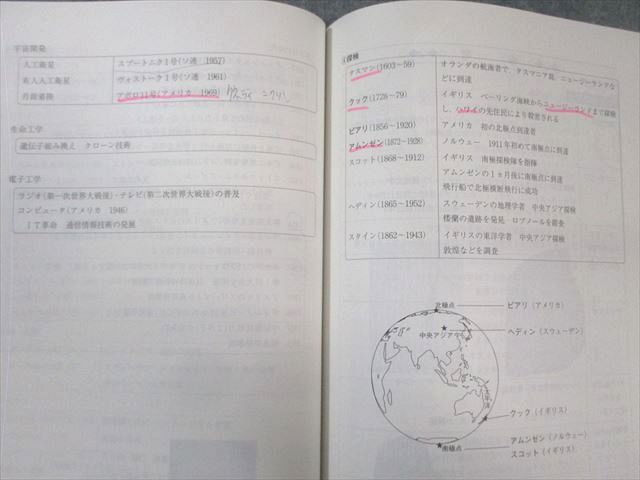 宇宙開発
人工衛星 スプートニク1号(ソ連 1957)
有人人工衛星 ヴォストーク1号(ソ連 1961)
月面着陸 アポロ11号(アメリカ 1969)
生命工学
遺伝子組み換え クローン技術
電子工学
ラジオ(第一次世界大戦後)・テレビ(第二次世界大戦後)の普及
コンピュータ(アメリカ 1946)
IT革命 通信情報技術の発展
探検
タスマン(1603~59) オランダの航海者で，タスマニア島，ニュージーランドな
どに到達
クック(1728~79) イギリス ベーリング海峡からニュージーランドまで探検
し，ハワイの先住民により殺害される
ピアリ(1856~1920) アメリカ 初の北極点到達者
アムンゼン(1872~1928) ノルウェー 1911年初めて南極点に到達
スコット(1868~1912) イギリス 南極探検隊を指揮
アムンゼンの1ヵ月後に南極点に到達
飛行船で北極横断飛行に成功
ヘディン(1865~1952) スウェーデンの地理学者 中央アジア探検
楼蘭の遺跡を発見・ロプノールを調査
スタイン(1862~1943) イギリスの東洋学者 中央アジア探検
敦煌などを調査
北極点 ピアリ(アメリカ)
中央アジア ヘディン(スウェーデン)
クック(イギリス)
アムンゼン(ノルウェー)
南極点 スコット(イギリス)